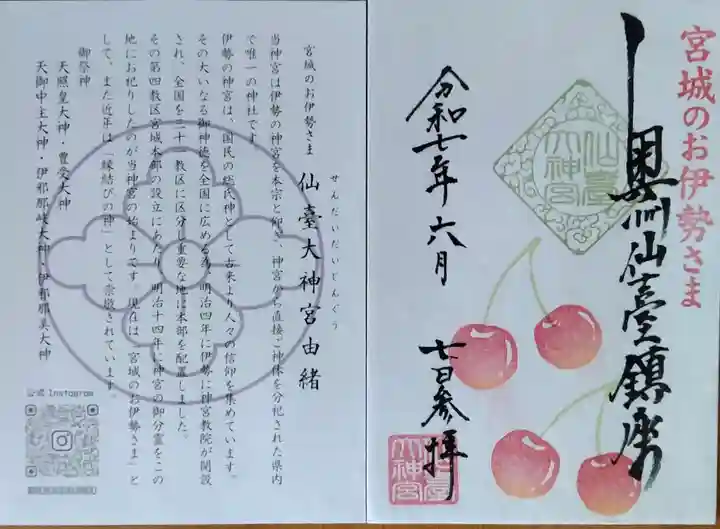 宮城のお伊勢さま
奥州仙臺鎮座
仙臺
大神宮
令和七年六月
七日参拝
仙臺
大神宮
せんだいだいじんぐう
宮城のお伊勢さま 仙臺大神宮由緒
当神宮は伊勢の神宮を本宗と仰ぎ、神宮から直接ご神体を分祀された県内
で唯一の神社です。
伊勢の神宮は、国民の総氏神として古来より人々の信仰を集めています。
その大いなる御神徳を全国に広める為、明治四年に伊勢に神宮教院が開設
され、全国を三十一教区に区分し重要な地に本部を配置しました。
その第四教区宮城本部の設立にあたり、明治十四年に神宮の御分霊をこの
地にお祀りしたのが当神宮の始まりです。現在は「宮城のお伊勢さま」と
して、また近年は「縁結びの神」として崇敬されています。
御祭神
天照皇大神・豊受大神
天御中主大神・伊邪那岐大神・伊邪那美大神
公式 Instagram